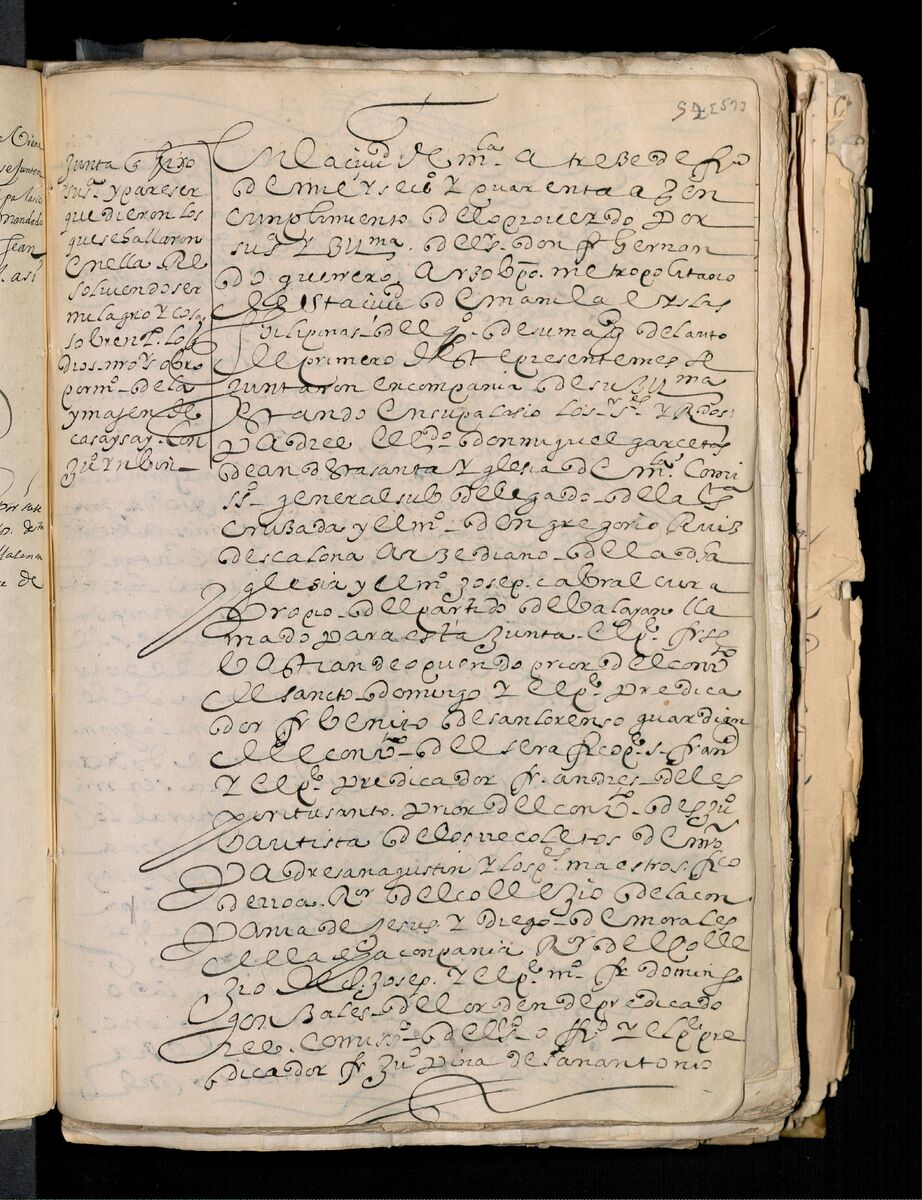 54 [57]
Junta q̃ hizo
su sª. y pareser
que dieron los
que se hallaron
en ella. Re
solviendo ser
milagrio y cosa
sobre nl. lo q̃
dios nro sr obro
por mº. de la
ymajen de
casaysay. Con
Juº rn biñ
En la ciud de mla. A trese de fro
de mill y seisº y quarenta a. Y en
cumplimiento de lo proveydo Por
su sª y Yllma. del sr. don fr Hernan
do. guerrero, Arzobpo. metropolitano
de esta ciud de manila e yslas
filipinas del qº. de su magd del auto
de primero de este presente mes se
juntaron en compania de su Yllma
estando en su palasio los srs. y Rdos
Padres el ldo. don miguel garcetas
dean desta santa yglesia de mla. Comi
ssº general sub delegado de la sta
Crusada y el mº. don gregorio Ruiz
descalona Arzediano de la dha
yglesia y el mº. Josep. cabral cura
Propio del partido de balayan lla
mado para esta Junta. el pe. fr se
bastian de oquendo prior del convto
de sancto domingo y el pe. predica
dor fr benito de san lorenso guardian
del convto. del serafico pe. s. franco
y el pe. predicador fr. andres del es
piritu santo. prior del convto. de s Juº
bautista de los recoletos de nro
Padre san agustin y los ps. maestros. frco
de rroa. Ror del collejio de la con
pania de Jesus y diego de morales
de la dha conpania Ror del colle
jio de s. Josep. y el pe. mº. fr domingo
gonsales. del orden de predicado
res. Comissº. del sto offº y el pe pre
dicador fr Juº pina de san antonio